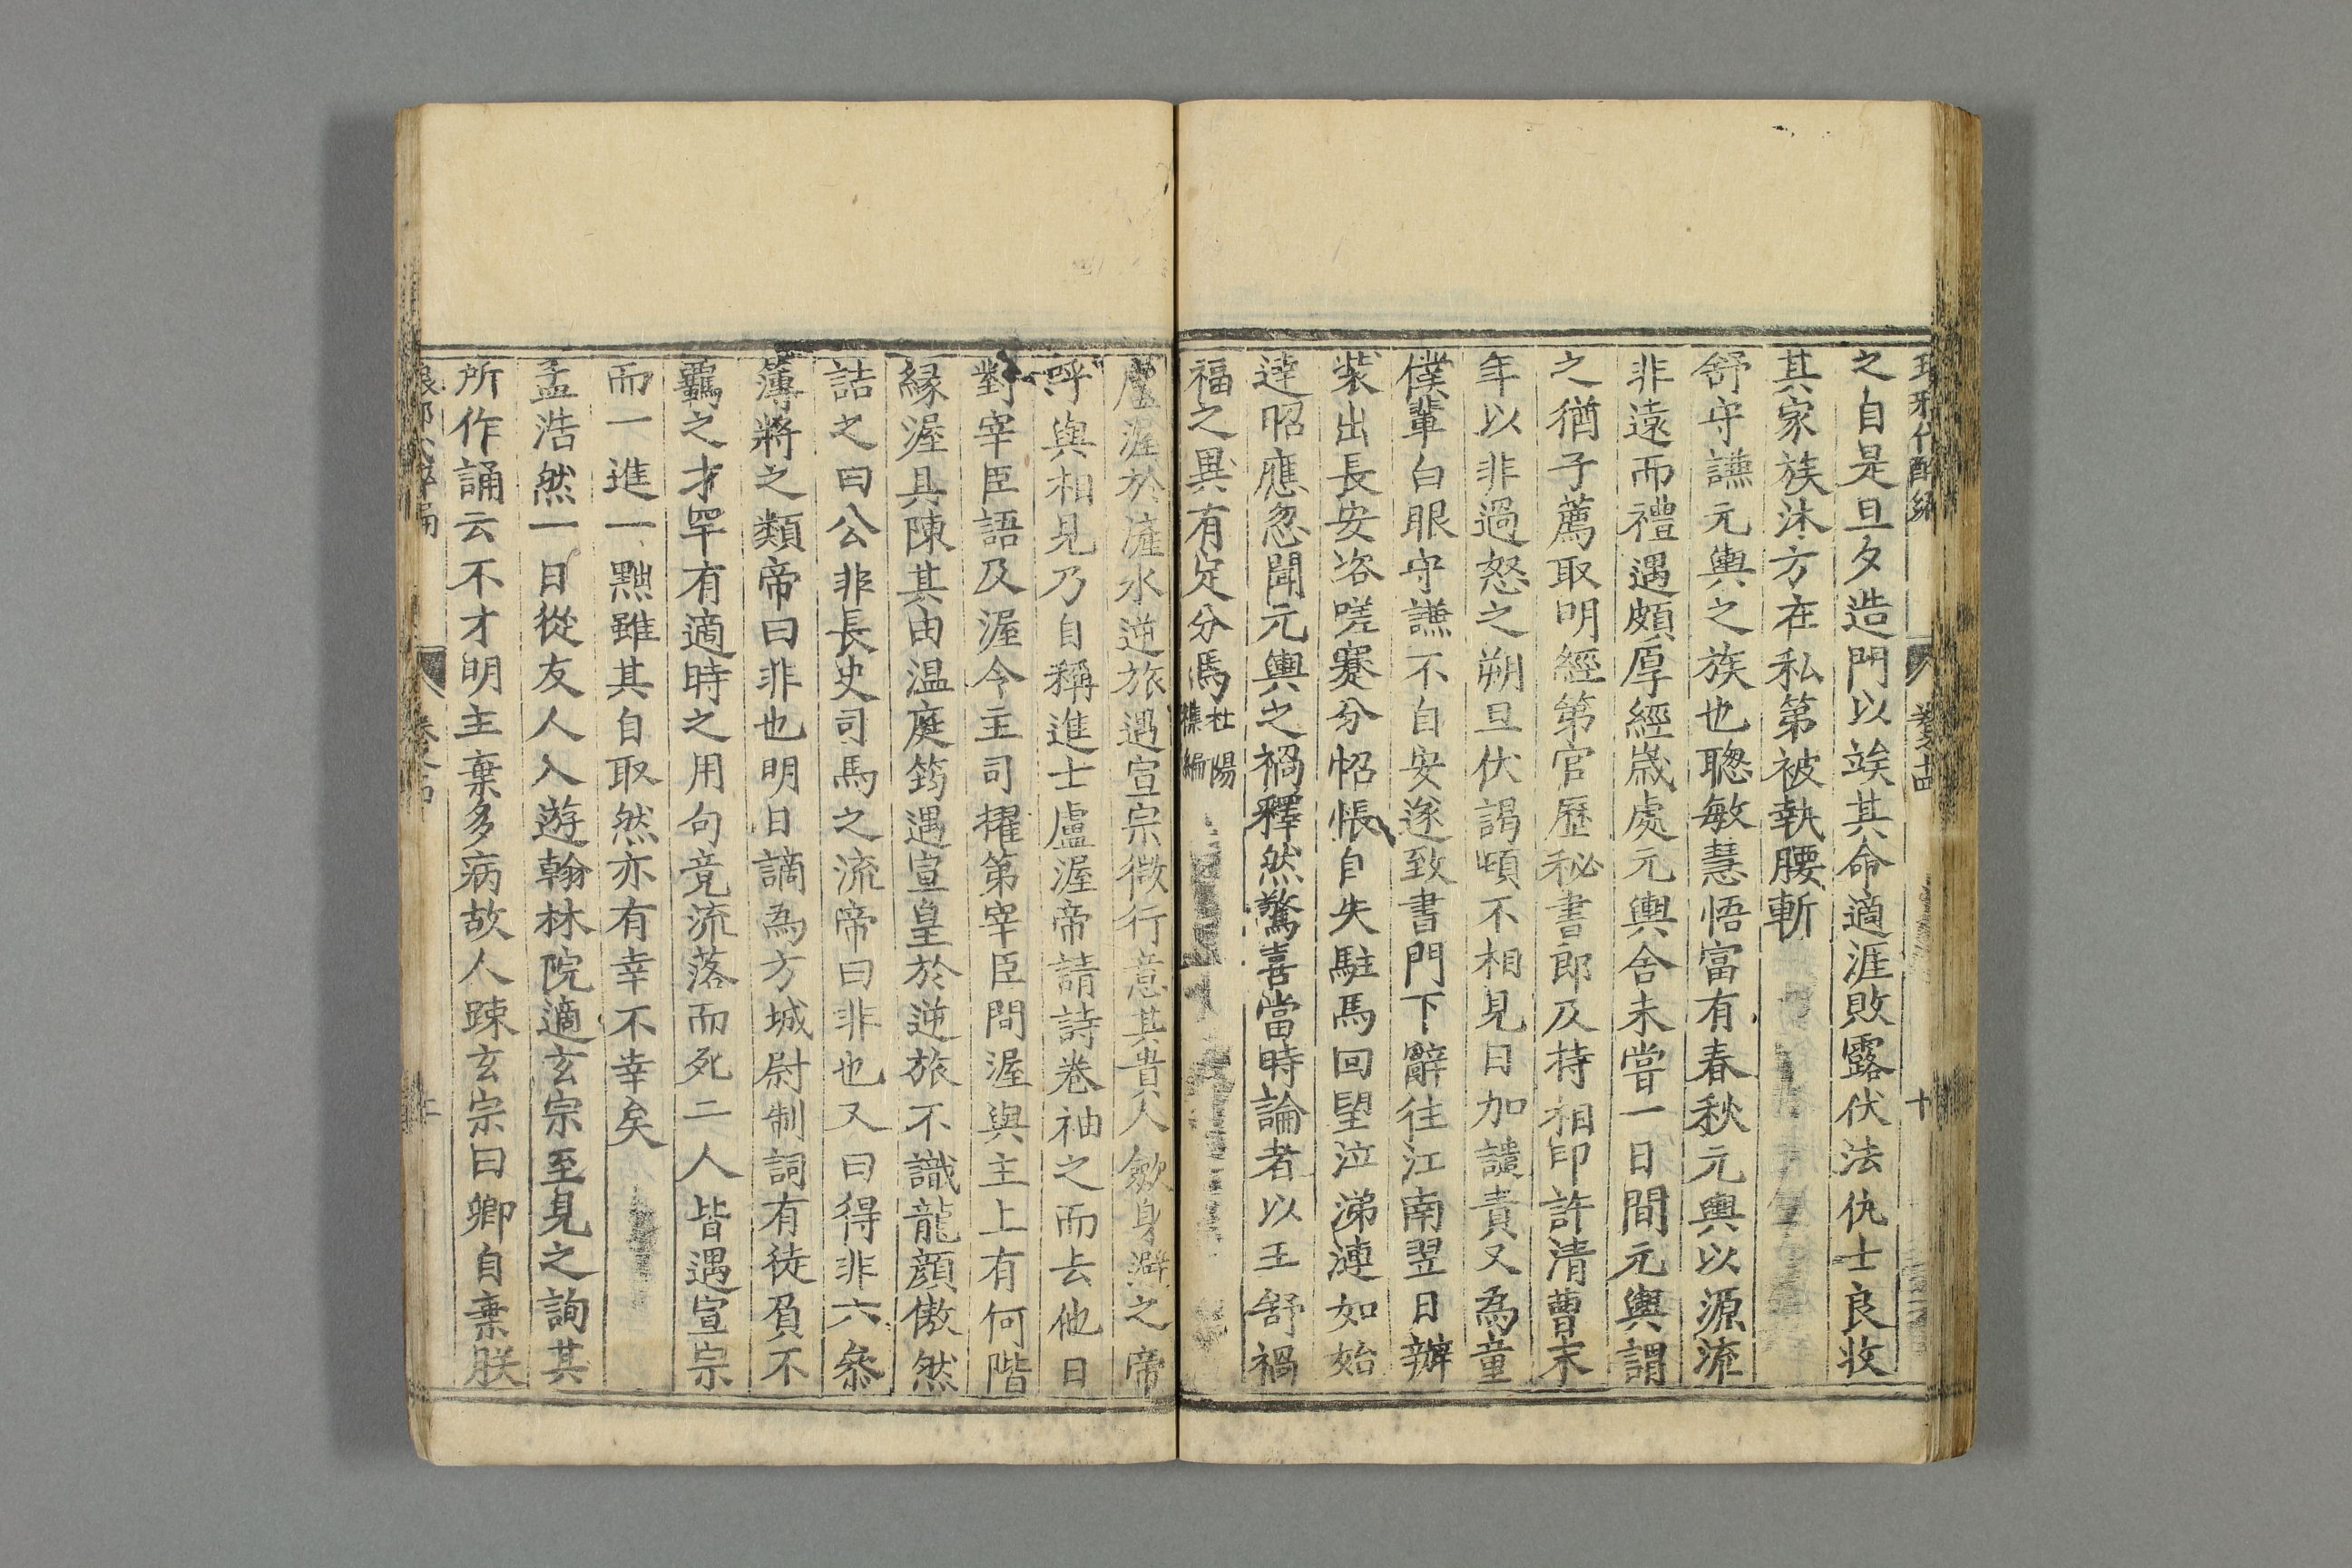 琅邪代醉編 卷之十四 十
之自是旦夕造門以竢其命適涯敗露伏法仇士良收
其家族沐方在私第被執腰斬
舒守謙元輿之族也聰敏慧悟富有春秋元輿以源流
非遠而禮遇頗厚經歲處元輿舍未嘗一日間元輿謂
之猶子薦取明經第官歷秘書郎及持相印許清曹末
年以非過怒之朔旦伏謁頓不相見日加譴責又為童
僕輩白眼守謙不自安遂致書門下辭往江南翌日辦
裝出長安咨嗟蹇分怊悵自失駐馬回望泣涕漣如始
達昭應忽聞元輿之禍釋然驚喜當時論者以王舒禍
福之異有定分焉杜陽雜編
盧渥於滻水逆旅遇宣宗微行意其貴人斂身避之帝
呼與相見乃自稱進士盧渥帝請詩卷袖之而去他日
對宰臣語及渥令主司擢第宰臣問渥與主上有何階
緣渥具陳其由温庭筠遇宣皇於逆旅不識龍顔傲然
詰之曰公非長史司馬之流帝曰非也又曰得非六叅
簿將之類帝曰非也明日謫為方城尉制詞有徒負不
羈之才罕有適時之用句竟流落而死二人皆遇宣宗
而一進一黜雖其自取然亦有幸不幸矣
孟浩然一日從友人入遊翰林院適玄宗至見之詢其
所作誦云不才明主棄多病故人踈玄宗曰卿自棄朕